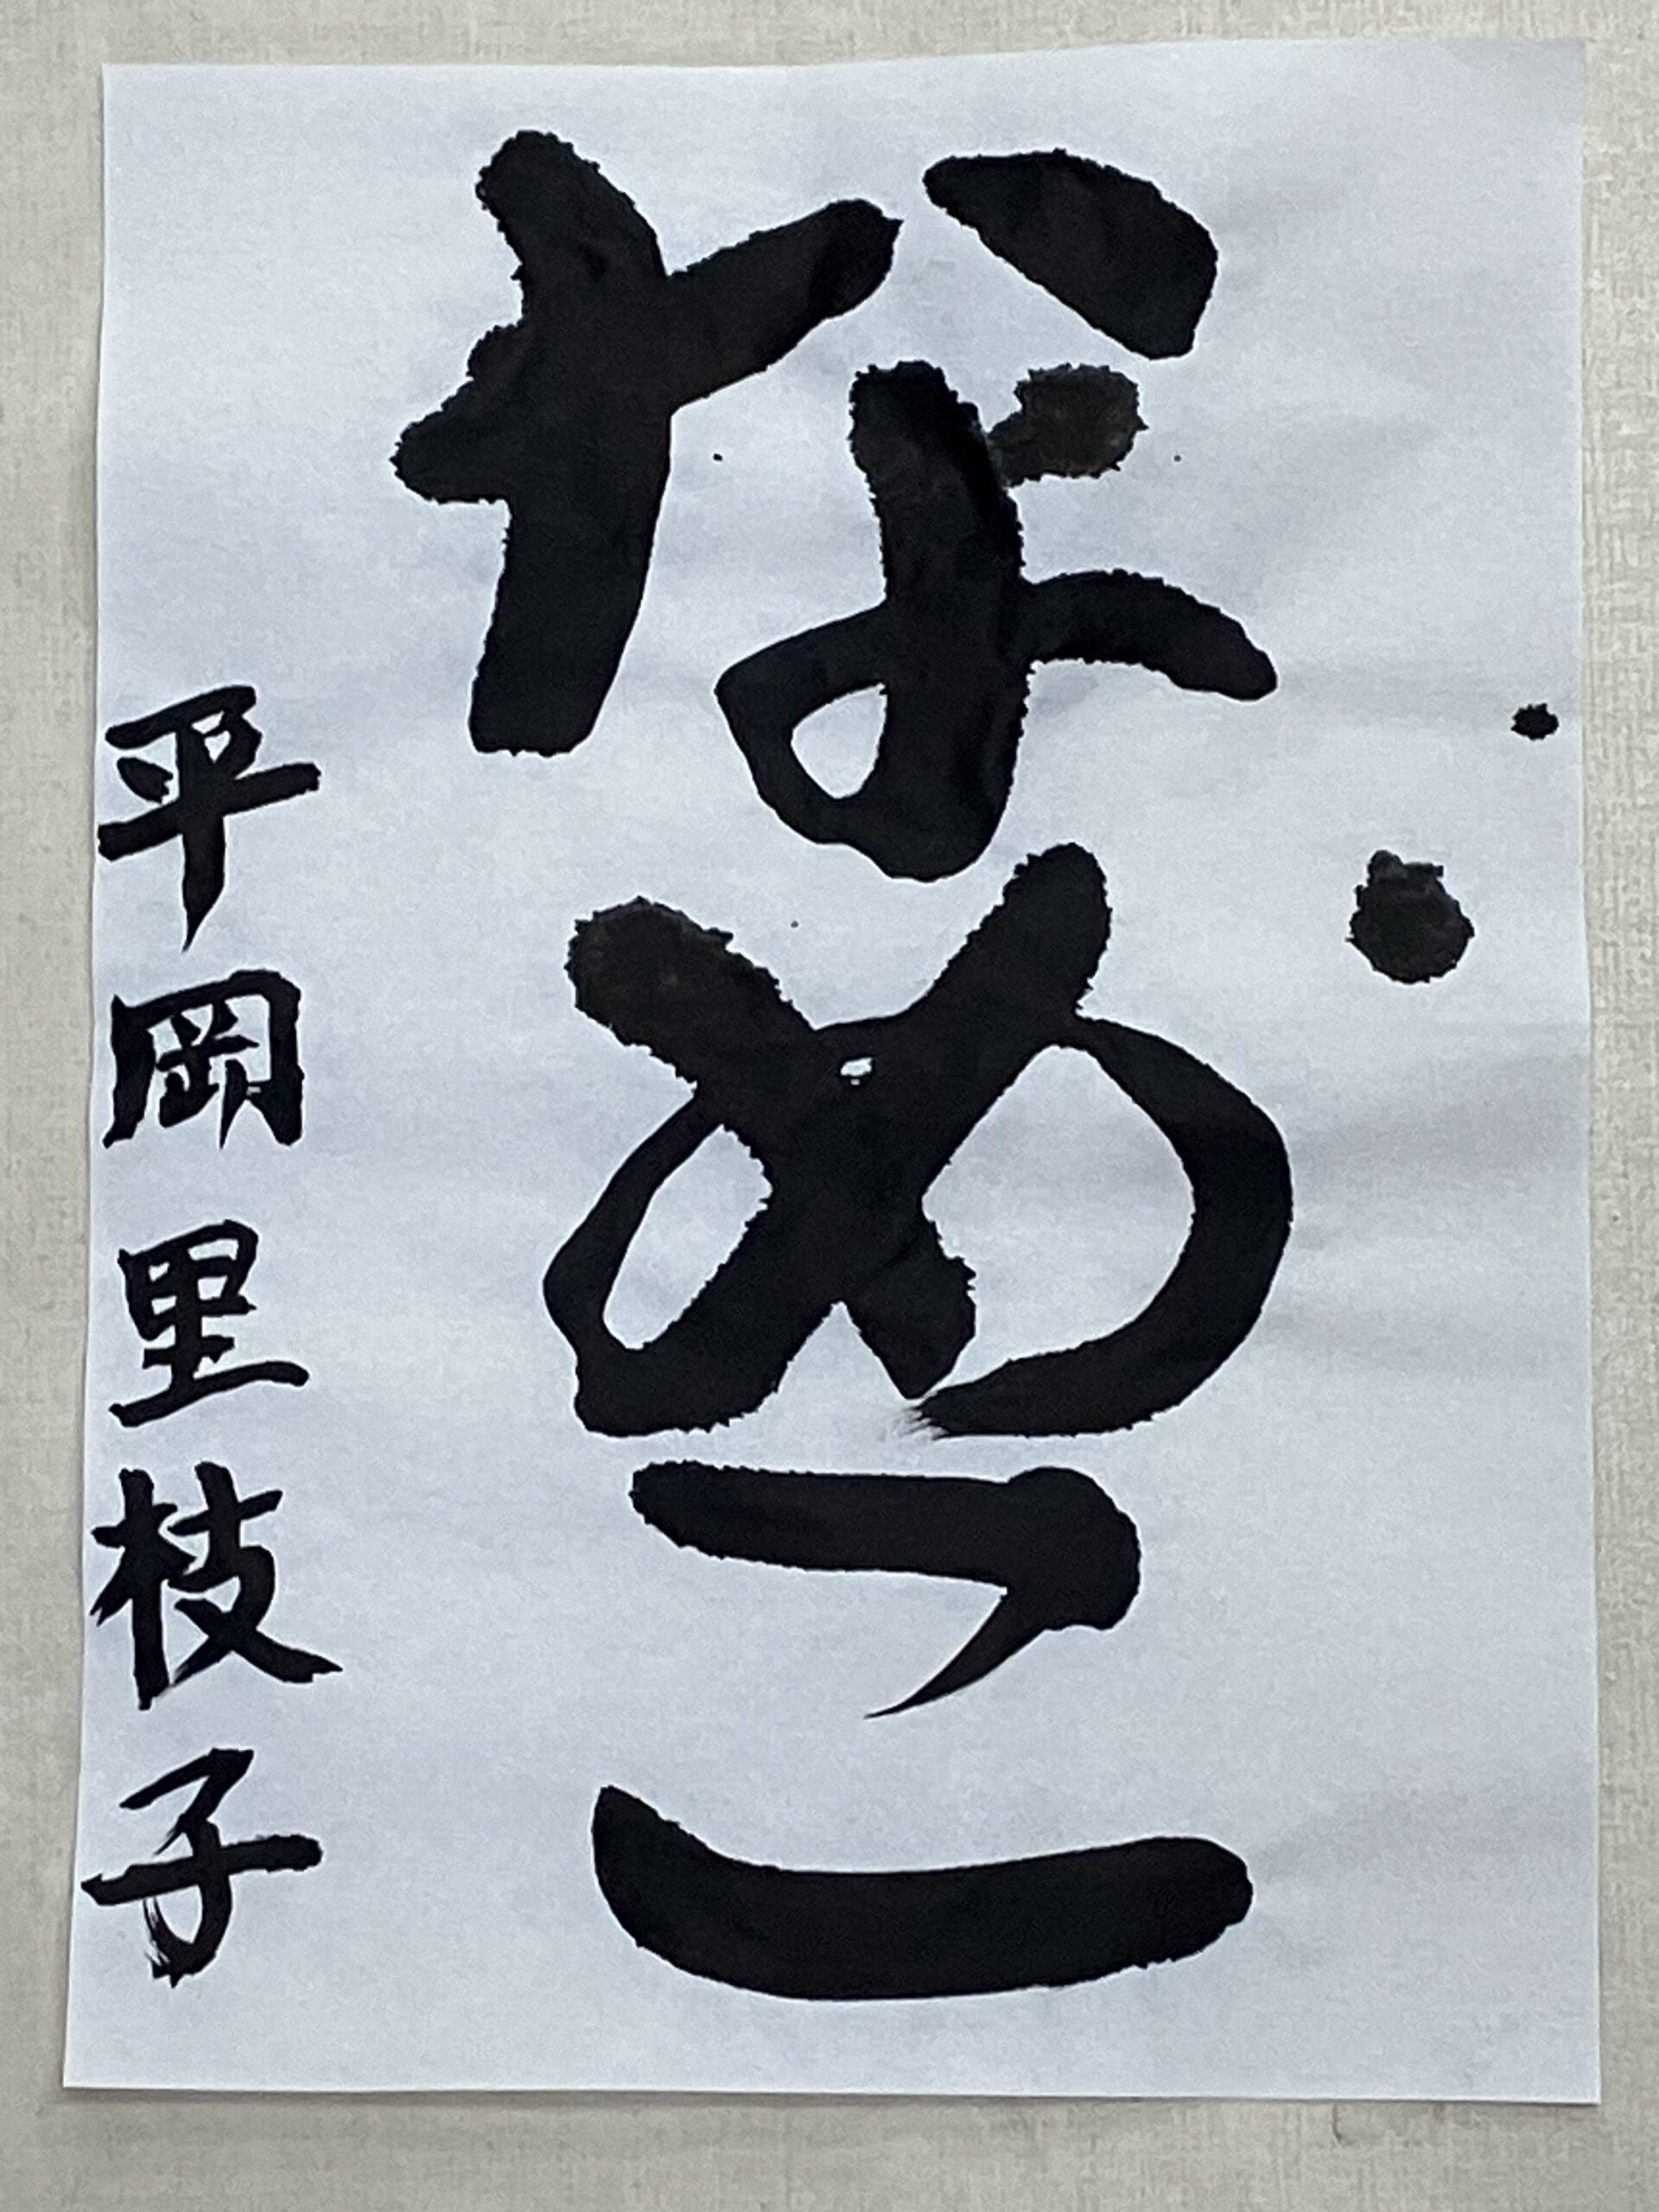 なめこ
平岡里枝子